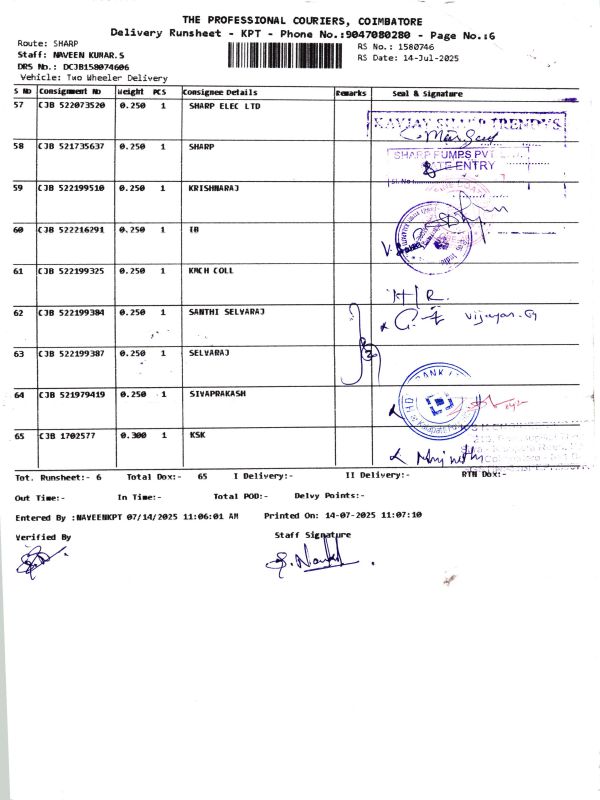 THE PROFESSIONAL COURIERS, COIMBATORE
Delivery Runsheet - KPT - Phone No.:9047080280 - Page No.:6
Route: SHARP
RS No.: 1580746
Staff: NAVEEN KUMAR.S
RS Date: 14-Jul-2025
DRS No.: DCJB158074606
Vehicle: Two Wheeler Delivery
S No Consignment No Weight PCS Consignee Details Remarks Seal & Signature
57 CJB 522073520 0.250 1 SHARP ELEC LTD
58 CJB 521735637 0.250 1 SHARP
SHARP PUMPS PVT
GATE ENTRY
59 CJB 522199510 0.250 1 KRISHNARAJ
60 CJB 522216291 0.250 1 IB
61 CJB 522199325 0.250 1 KMCH COLL
H/R.
62 CJB 522199384 0.250 1 SANTHI SELVARAJ
Vijayan.G
63 CJB 522199387 0.250 1 SELVARAJ
64 CJB 521979419 0.250 1 SIVAPRAKASH
BANK
65 CJB 1702577 0.300 1 KSK
Tot. Runsheet:- 6 Total Dox:- 65 I Delivery:- II Delivery:- RTN Dox:-
Out Time:- In Time:- Total POD:- Delvy Points:-
Entered By :NAVEENKPT 07/14/2025 11:06:01 AM Printed On: 14-07-2025 11:07:10
Verified By Staff Signature